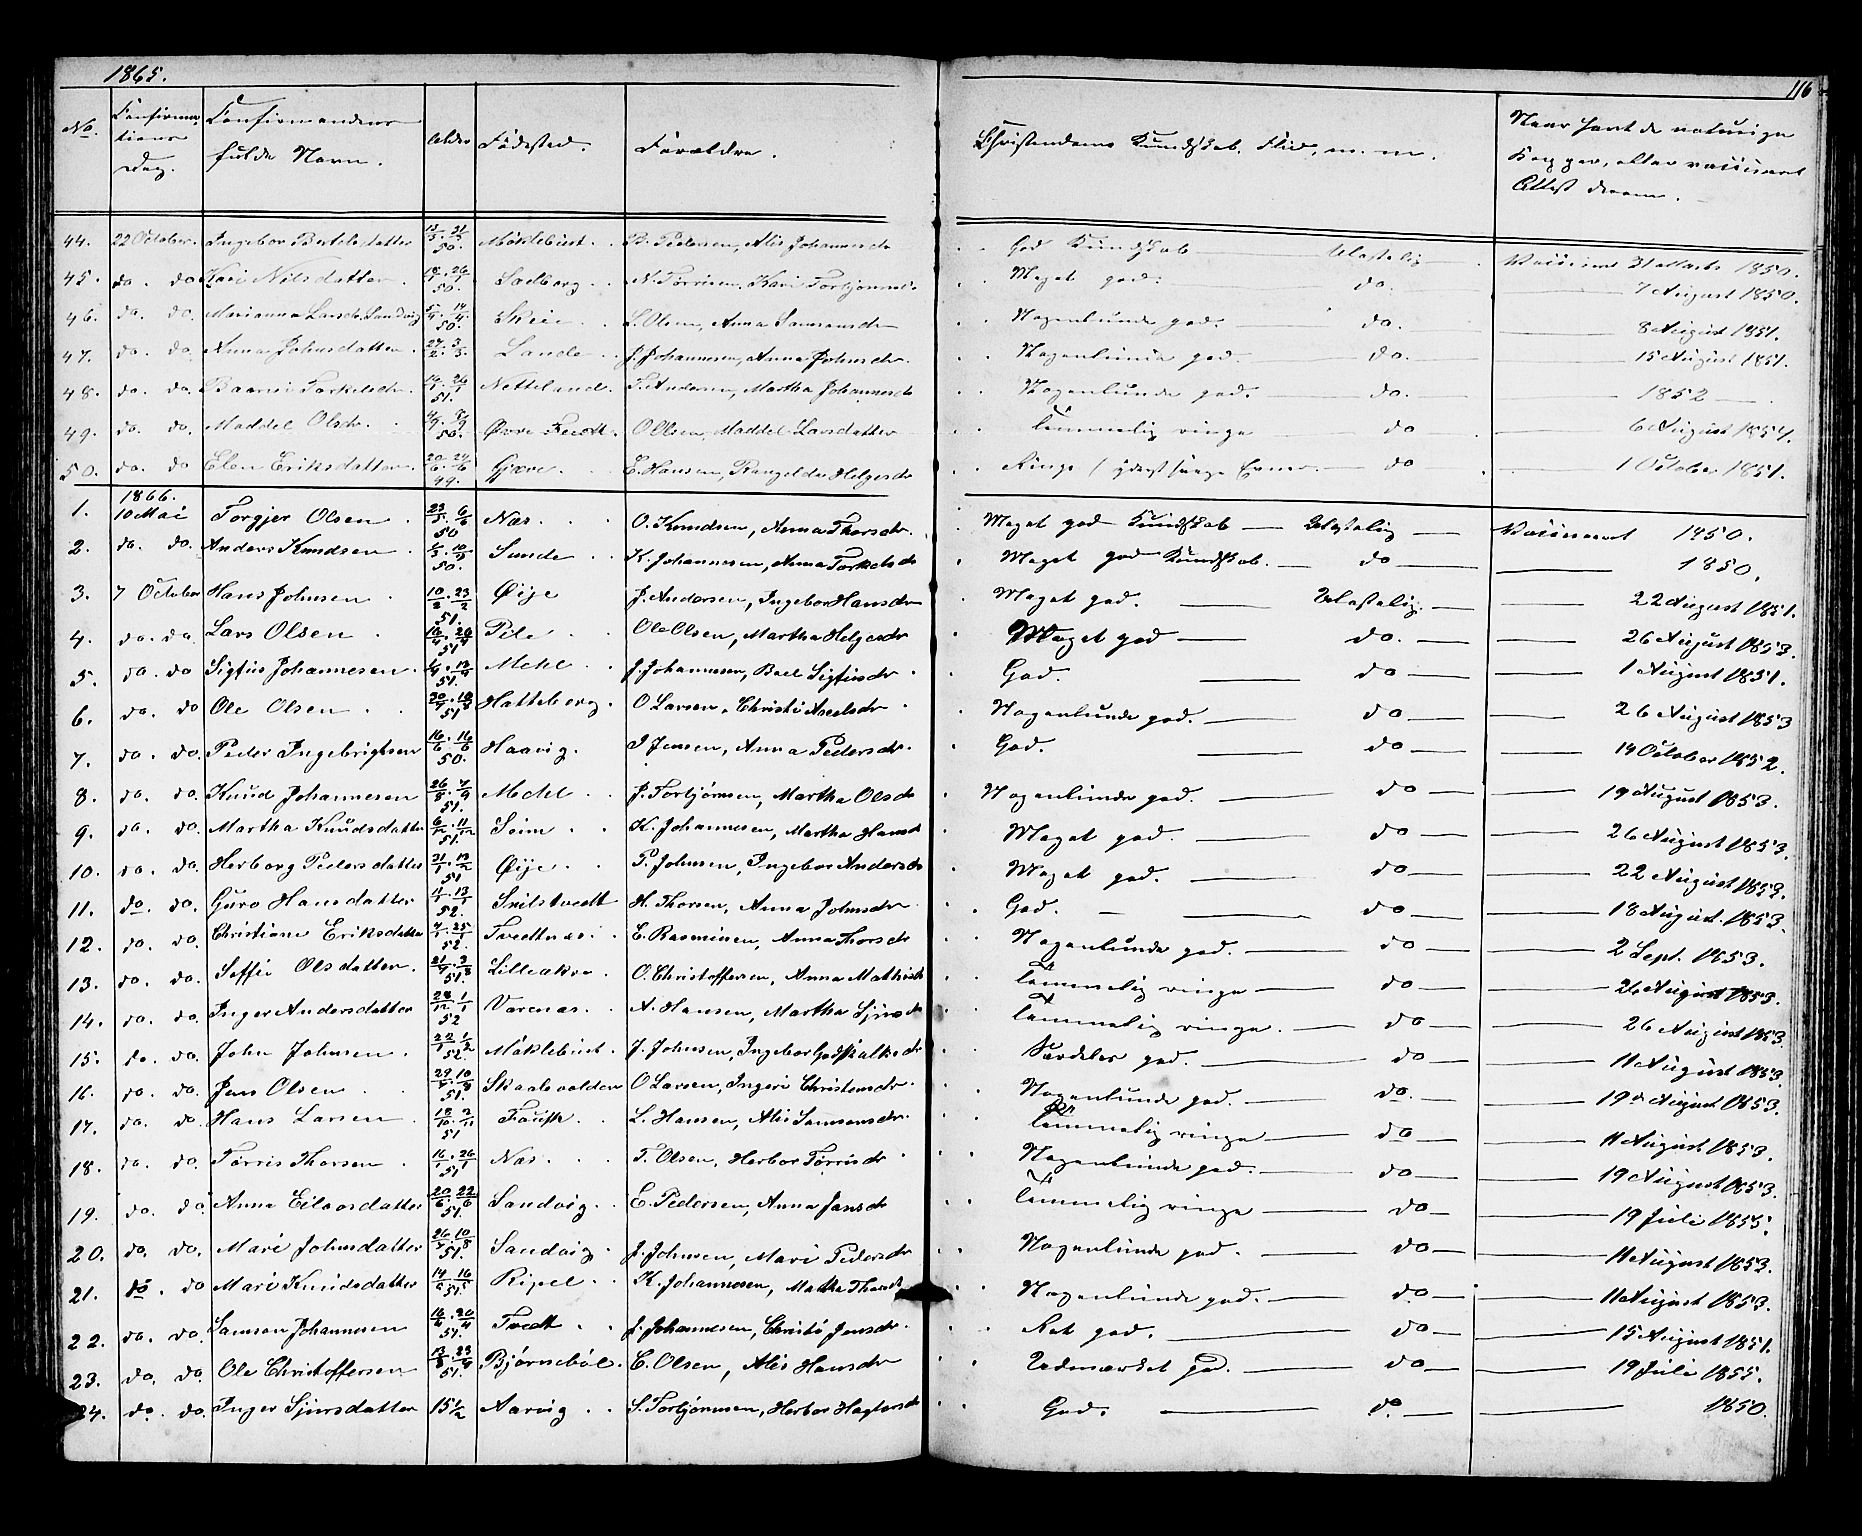 1865.
116
No. Confirmations Dag. Confirmandens fulde Navn. Alder Fødested. Forældre. Christendoms Kundskab, Flid, m. m. Naar havt de naturlige Kopper, eller vaccineret Attest derom.
44. 22 October. Ingebor Bertelsdatter 50. Møklebust. B. Pedersen, Alis Johannesdr God Kundskab Ulastelig Vaccineret 1850.
45. do. do Kari Nilsdatter. 50. Sadberg N. Tørrisen, Kari Torbjørnsd. Meget god. do. 7 August 1850.
46. do. do. Marianna Larsdr. Sandvig 50. Skeie L. Olsen, Anna Samsonsdr Nogenlunde god. do. 8 August 1851.
47. do. do. Anna Johnsdatter. Lande J. Johannesen, Anna Johnsdr. Nogenlunde god. do. 15 August 1851.
48. do. do. Torkelsdr. 51. Netteland. T. Andersen, Martha Johannesdr Nogenlunde god. do. 1852
49. do. do. Maddel Olsdr. 50. Øvre Tvedt. O Olsen, Maddel Larsdatter Temmelig ringe do 6 August 1851.
50. do. do Elen Eriksdatter. 49. Gjære. E. Hansen, Rangelda Helgesdr Ringe / yderst svage Evner. do 1 October 1851.
1866.
1. 10 Mai Torgjer Olsen 50 Næs. O. Knudsen, Anna Thorsdr. Meget god Kundskab Ulastelig Vaccineret 1850.
2. do. do. Anders Knudsen 50. Sunde K. Johannesen, Anna Torkelsdr Meget god Kundskab. do 1850.
3. 7 October Hans Johnsen 10/2 . 23/2 51. Øije J. Andersen, Ingebor Hansdr Meget god. Ulastelig. 22 August 1851.
4. do. do. Lars Olsen 51 Pile Ole Olsen, Martha Helgesdr Meget god do. 26 August 1853.
5. do. do Sigfus Johannesen. 51. Mehl J. Johannesen, Boel Sigfusdr God. do 1 August 1851.
6. do. do Ole Olsen 51 Hatteberg. O Larsen, Christi Axelsdr Nogenlunde god. do 26 August 1853
7. do. do. Peder Ingebrigtsen 16/6 . 16/6 50. Haavig. I Jensen, Anna Pedersdr. God. do 14 October 1852.
8. do. do. Knud Johannesen 51. Mehl J. Torbjørnsen, Martha Olsdr Nogenlunde god. do 19 August 1853.
9. do. do. Martha Knudsdatter 6/12 . 11/12 51. Seim K. Johannesen, Martha Hansd Meget god. do 26 August 1853.
10. do. do. Herborg Pedersdatter 51 Øije P. Johnsen, Ingebor Andersdr Meget god. do 22 August 1853.
11. do. do. Guro Hansdatter 11/1 . 13/1 52. Snilstvedt H. Thorsen, Anna Johnsdr God. do 18 August. 1853.
12. do. do. Christiane Eriksdatter 52. Tvedtnæs E. Rasmusen, Anna Thorsdr Nogenlunde god. do 2 Sept. 1853.
13. do. do. Soffie Olsdatter. 51. Lilleakre. O. Christoffersen, Anna Mathisdr Temmelig ringe do 26 August 1853.
14. do. do. Inger Andersdatter 28/12 . 1/1 52 Varenæs. A. Hansen, Martha Sjursdr Temmelig ringe. do 26 August 1853.
15. do. do. John Johnsen 22/1 . 1/2 52. Møklebust. J. Johnsen, Ingebor Godskalksdr Særdeles god. do 11 August 1853.
16. do. do. Jens Olsen 51. Skaalevalden O Larsen, Ingeri Christensdr. Nogenlunde god. do. 19de August 1853.
17. do. do. Hans Larsen 51 L. Hansen, Alis Samsonsdr. Temmelig ringe do 11 August 1853.
18. do. do. Tørris Thorsen 16/1 . 26/1 51 Næs. T. Olsen, Herbor Tørrisdr Nogenlunde god. do 19 August 1853.
19. do. do. Anna Eilaosdatter 20/6 . 22/6 51. Sandvig. E. Pedersen, Anna Jansdr Temmelig ringe do 19 Juli 1855.
20. do. do. Mari Johnsdatter 51. Sandvig J. Johnsen, Mari Pedersdr Nogenlunde god. do 11 August 1853.
21. do. do Mari Knudsdatter 51. Ripel K. Johannesen, Martha Thorsd Nogenlunde god. do 11 August 1853.
22. do. do. Samson Johannesen 51. Tvedt J. Johannesen, Christi Jensdr. Ret god. do 15 August 1851.
23. do. do. Ole Christoffersen 51. Bjørnebøl. C. Olsen, Alis Hansdr Udmærket god. do 19 Juli 1855.
24. do. do. Inger Sjursdatter 15 1/2 Aarvig S. Torbjørnsen, Herbor Hagtorsd God. do 1850.